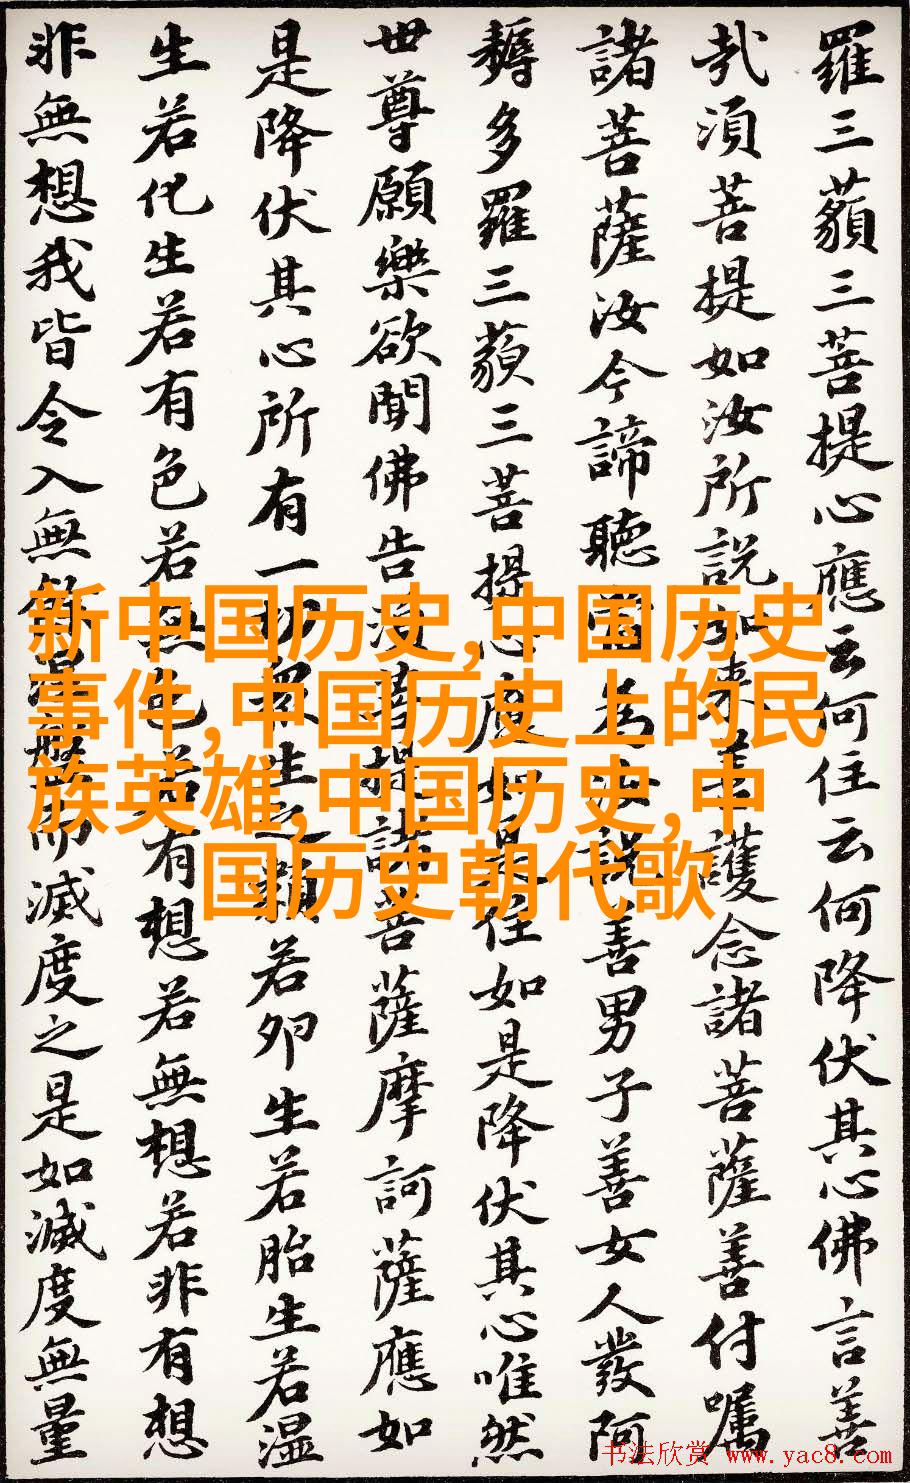 羅三藐三菩提心應云何住云何降伏其心佛言善
哉須菩提如汝所說如來善護念諸菩薩善付囑
諸菩薩汝今諦聽當為汝說善男子善女人發阿
耨多羅三藐三菩提心應如是住如是降伏其心唯然
世尊願樂欲聞佛告須菩提諸菩薩摩訶薩應如
是降伏其心所有一切眾生之類若卵生若胎生若湿
生若化生若有色若無色若有想若無想若非有想
非無想我皆令入無餘涅槃而滅度之是如滅度無量
新中国历史,中国历史
事件,中国历史上的民
族英雄,中国历史,中
国历史朝代歌
书法欣赏 www.yac8.com